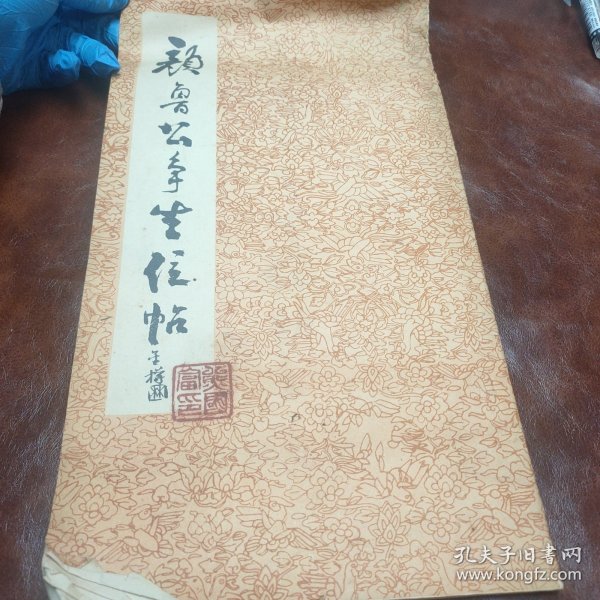 颜鲁公争坐位帖
孔夫子旧书网
www.kongfz.com